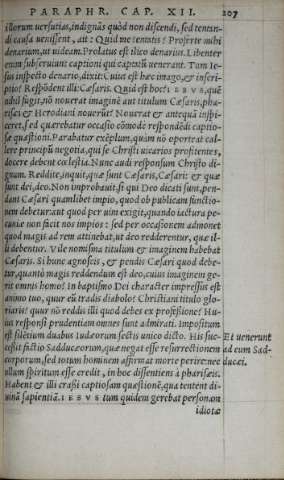 PARAPHR. CAP. XII. 207
illorum uersutias, indignãs quòd non discendi, sed tentan-
di causa uenissent, ait: Quid me tentatis? Proferte mihi
denarium, ut uideam. Prolatus est ilico denarius. Libenter
enim subseruiunt captioni qui captum uenerant. Tum Ie-
sus inspecto denario, dixit: Cuius est hæc imago, & inscri-
ptio? Respõdent illi: Cæsaris. Quid est hoc? IESVS, quẽ
nihil fugit, nõ nouerat imaginẽ aut titulum Cæsaris, pha-
risæi & Herodiani nouerũt? Nouerat & antequã inspi-
ceret, sed quærebatur occasio cõmodè respondẽdi captio-
sæ quæstioni. Parabatur exẽplum, quàm nõ oporteat cal-
lere principũ negotia, qui se Christi uicarios profitentes,
docere debent cœlestia. Nunc audi responsum Christo di-
gnum. Reddite, inquit, quæ sunt Cæsaris, Cæsari: & quæ
sunt dei, deo. Non improbauit si qui Deo dicati sunt, pen-
dant Cæsari quamlibet impio, quod ob publicam functio-
nem debetur: aut quod per uim exigit, quando iactura pe-
cuniæ non facit nos impios: sed per occasionem admonet
quod magis ad rem attinebat, ut deo redderentur, quæ il-
li debentur. Vile nomisma titulum & imaginem habebat
Cæsaris. Si hunc agnoscis, & pendis Cæsari quod debe-
tur, quantò magis reddendum est deo, cuius imaginem ge-
rit omnis homo? In baptismo Dei character impressus est
animo tuo, quur eũ tradis diabolo? Christiani titulo glo-
riaris? quur nõ reddis illi quod debes ex professione? Hu-
ius responsi prudentiam omnes sunt admirati. Impositum
est silẽtium duabus Iudæorum sectis unico dicto. His suc-
cessit factio Sadducæorum, quæ negat esse resurrectionem
corporum, sed totum hominem affirmat morte perire: nec
ullum spiritum esse credit, in hoc dissentiens à pharisæis.
Habent & illi crassi captiosam quæstionẽ, qua tentent di-
uinã sapientiã. IESVS tum quidem gerebat personam
Et uenerunt
ad eum Sad-
ducæi.
idiotæ